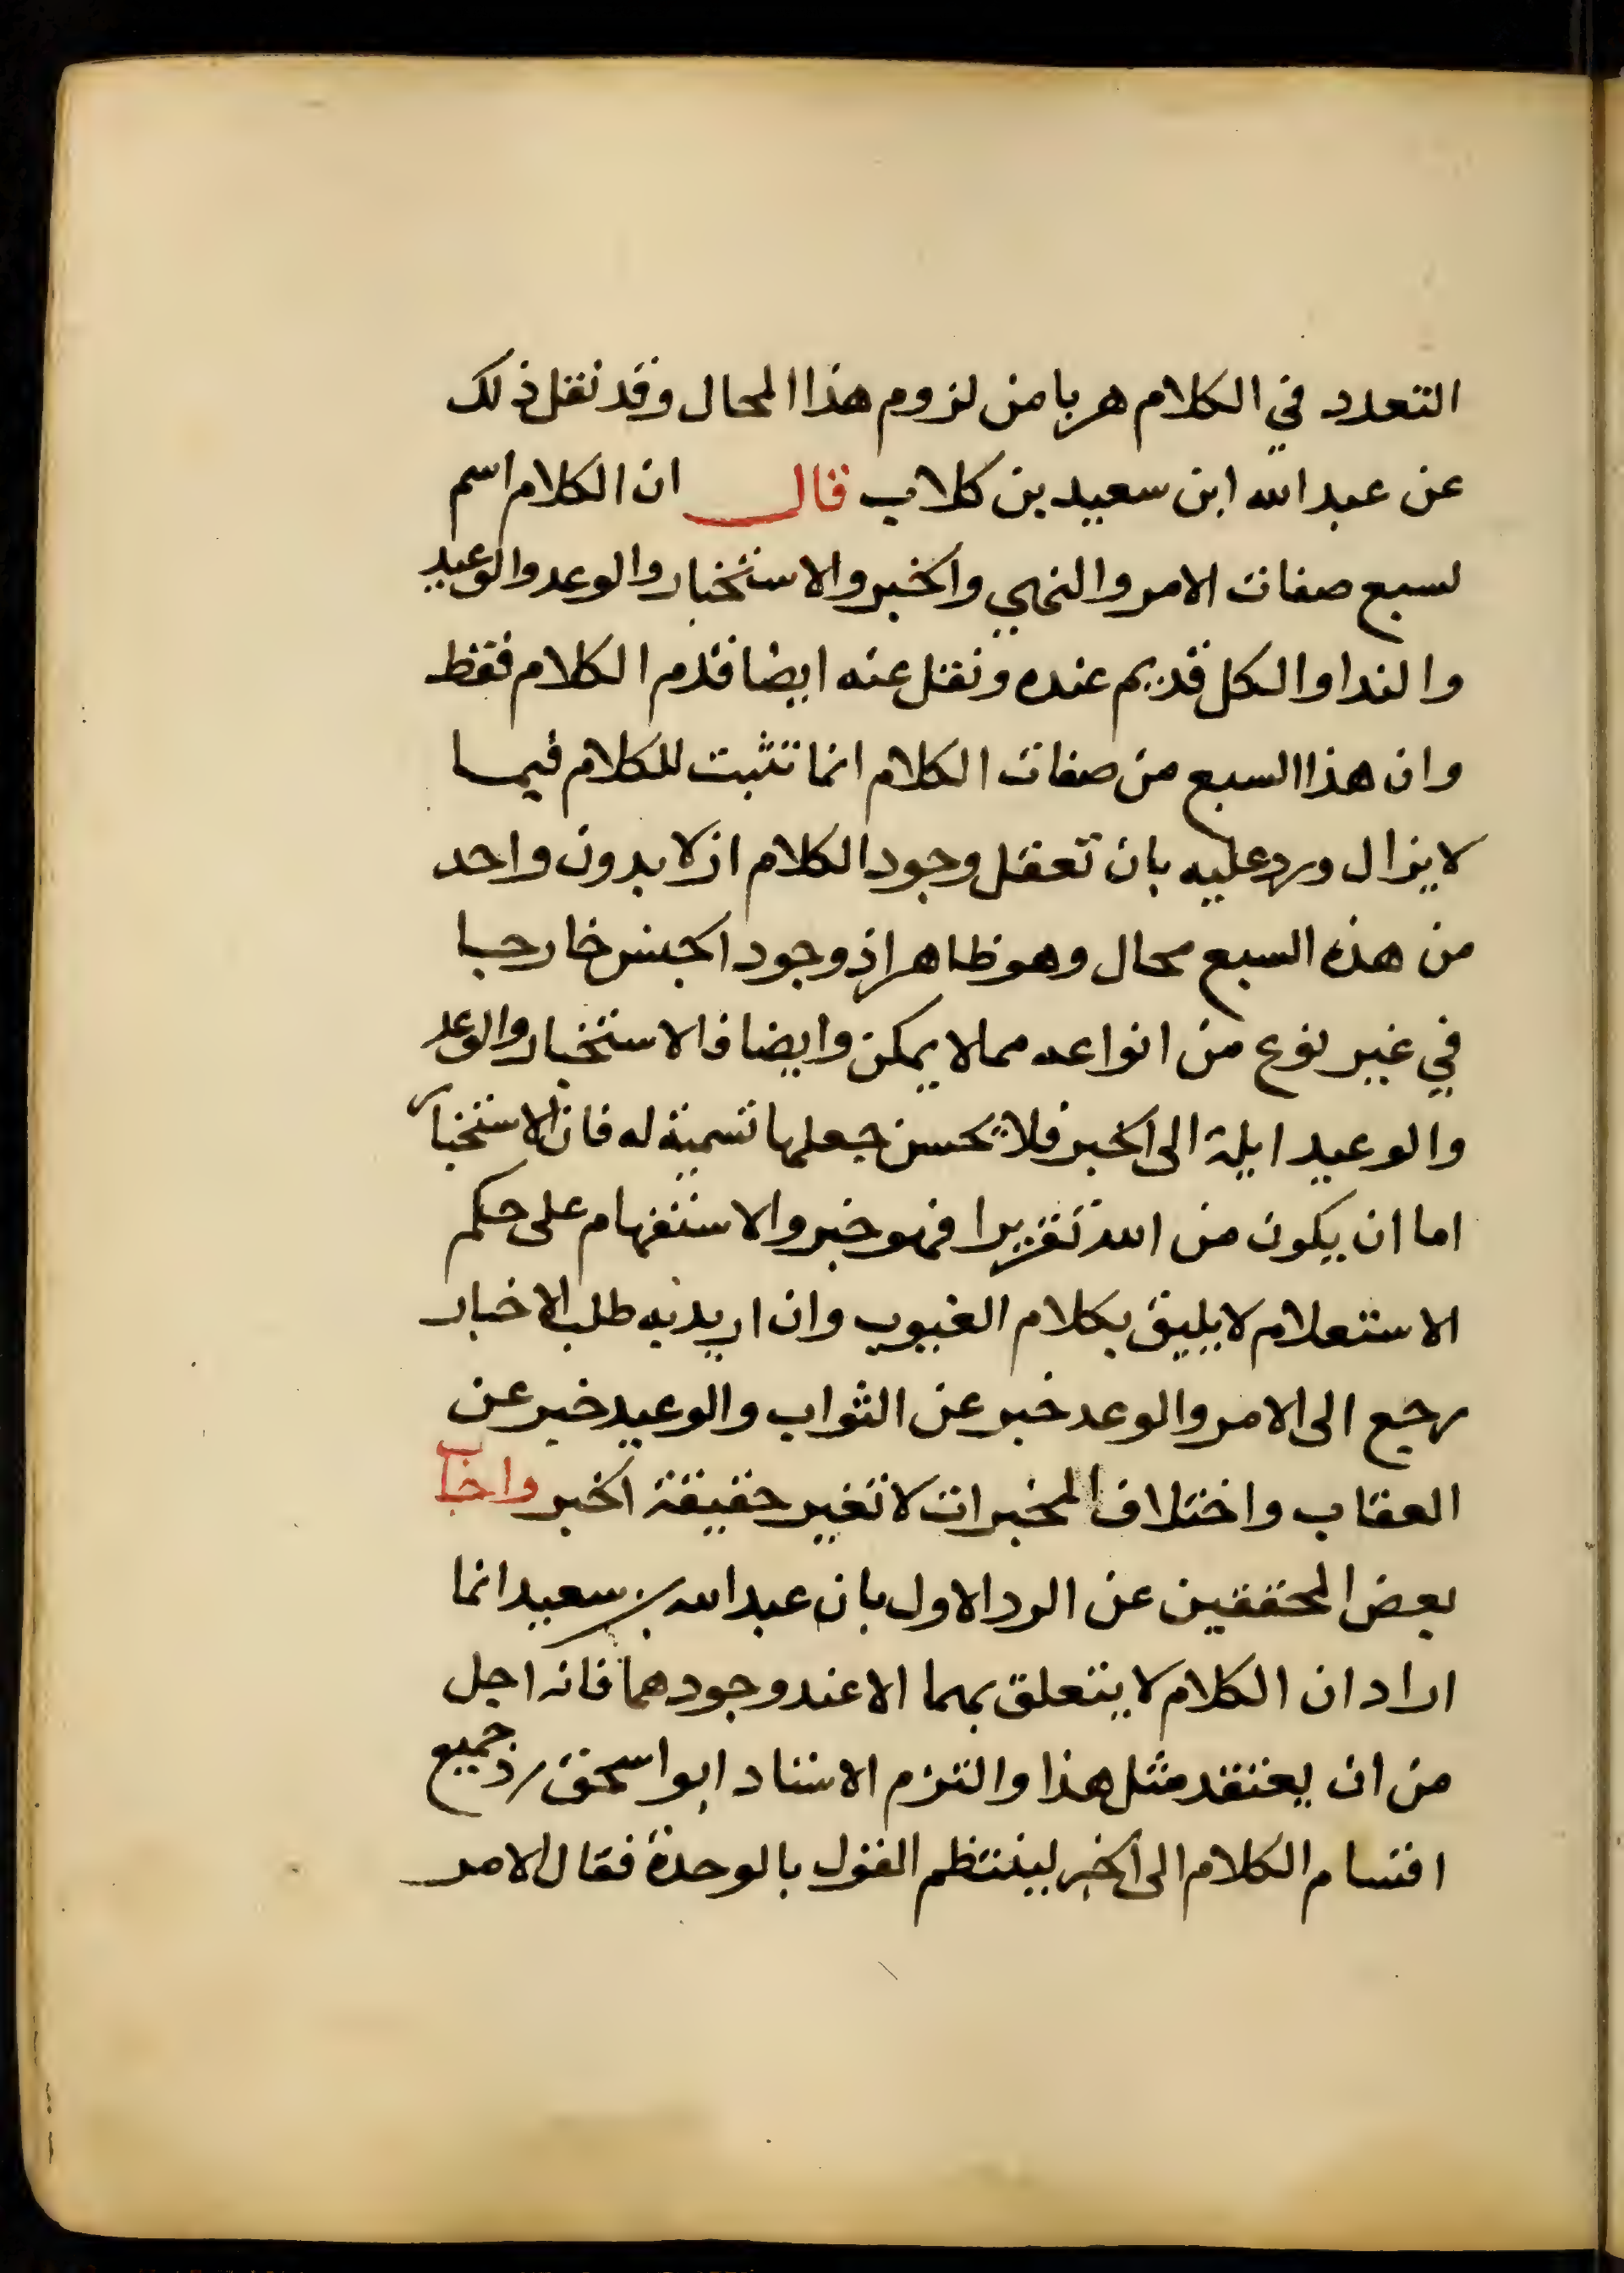 التعدد في الكلام هربا من لزوم هذا المحال وقد نقل ذلك
عن عبد الله ابن سعيد بن كلاب قال ان الكلام اسم
لسبع صفات الامر والنهي والخبر والاستخبار والوعد والوعيد
والندا والكل قديم عنده ونقل عنه ايضا قدم الكلام فقط
وان هذا السبع من صفات الكلام انما تثبت للكلام فيما
لا يزال ورد عليه بان تعقل وجود الكلام ازلا بدون واحد
من هذه السبع محال وهو ظاهر اذ وجود الجنس خارجيا
في غير نوع من انواعه مما لا يمكن وايضا فالاستخبار والوعد
والوعيد ايلة الى الخبر فلا يحسن جعلها تسمية له فان الاستخبار
اما ان يكون من الله تقريرا فهو خبر والاستفهام على حكم
الاستعلام لا يليق بكلام الغيوب وان اريد به طلب الاخبار
رجع الى الامر والوعد خبر عن الثواب والوعيد خبر عن
العقاب واختلاف المخبرات لا تغير حقيقة الخبر واجاب
بعض المحققين عن الرد الاول بان عبد الله بن سعيد انما
اراد ان الكلام لا يتعلق بهما الا عند وجودهما فانه اجل
من ان يعتقد مثل هذا والتزم الاستاد ابو اسحق رد جميع
اقسام الكلام الى الخبر لينتظم القول بالوحدة فقال الامر